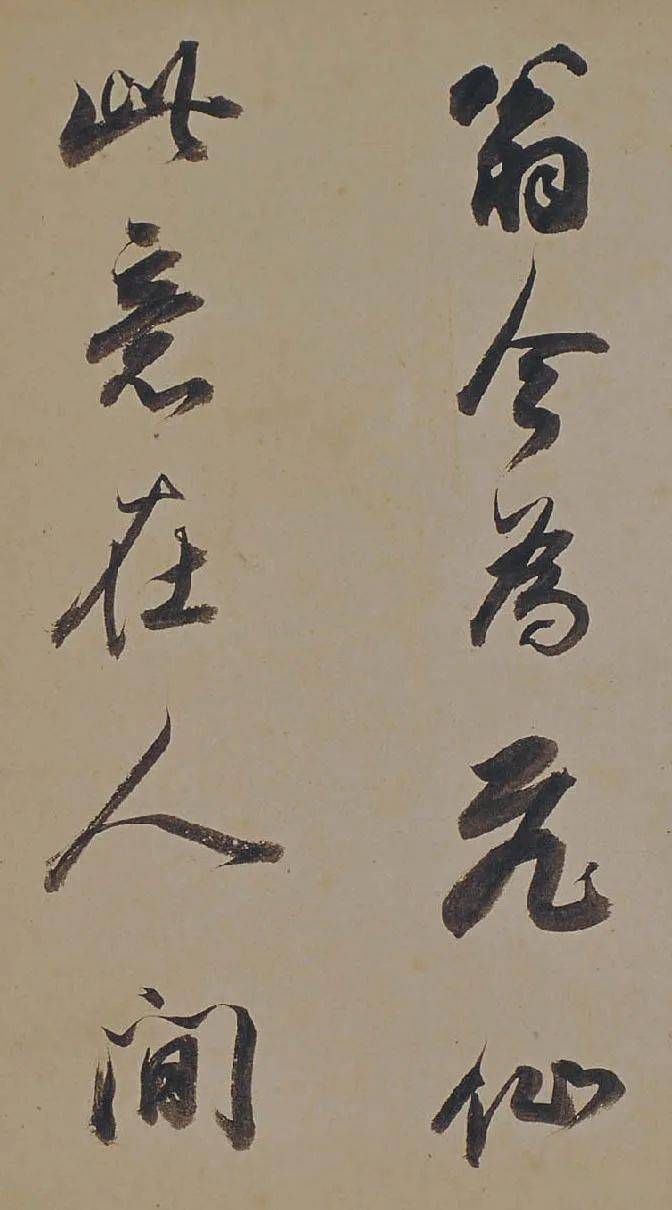 翁今為飛仙
此意在人間